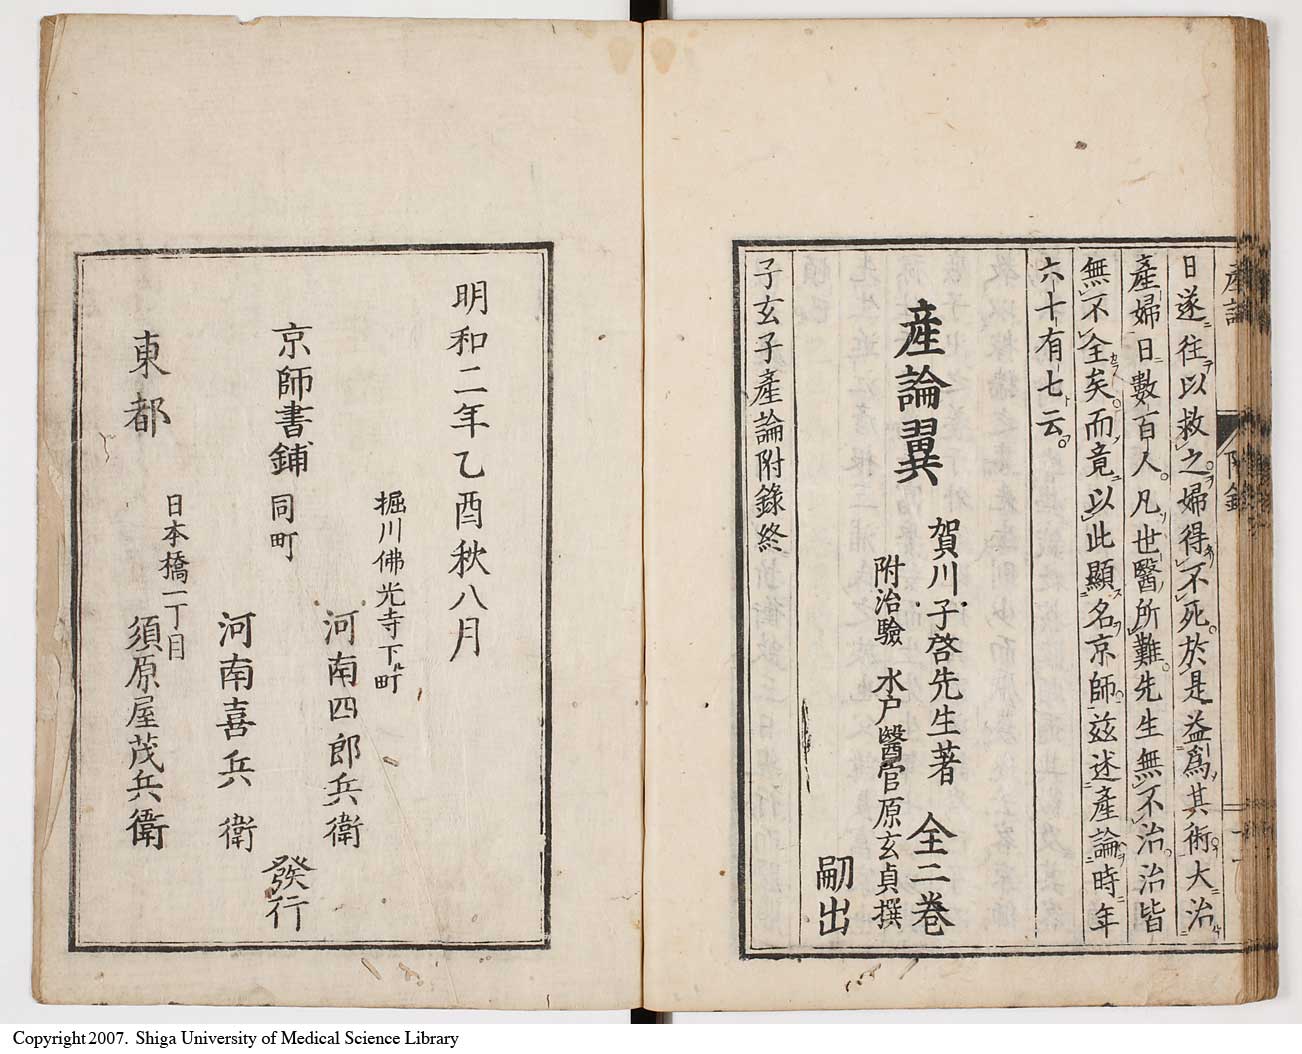 産論
附錄
日遂往以救之婦得不死於是益爲其術大治
産婦日數百人凡世醫所難先生無不治治皆
無不全矣而竟以此顯名京師茲述産論時年
六十有七云
産論翼
賀川子啓先生著 全二巻
附治驗 水戸醫官原玄貞撰
嗣出
子玄子産論附錄終
明和二年乙酉秋八月
堀川佛光寺下ル町
河南四郎兵衛
京師書鋪 同町
河南喜兵衛
日本橋一丁目
東都
須原屋茂兵衛
發行
Copyright 2007. Shiga University of Medical Science Library